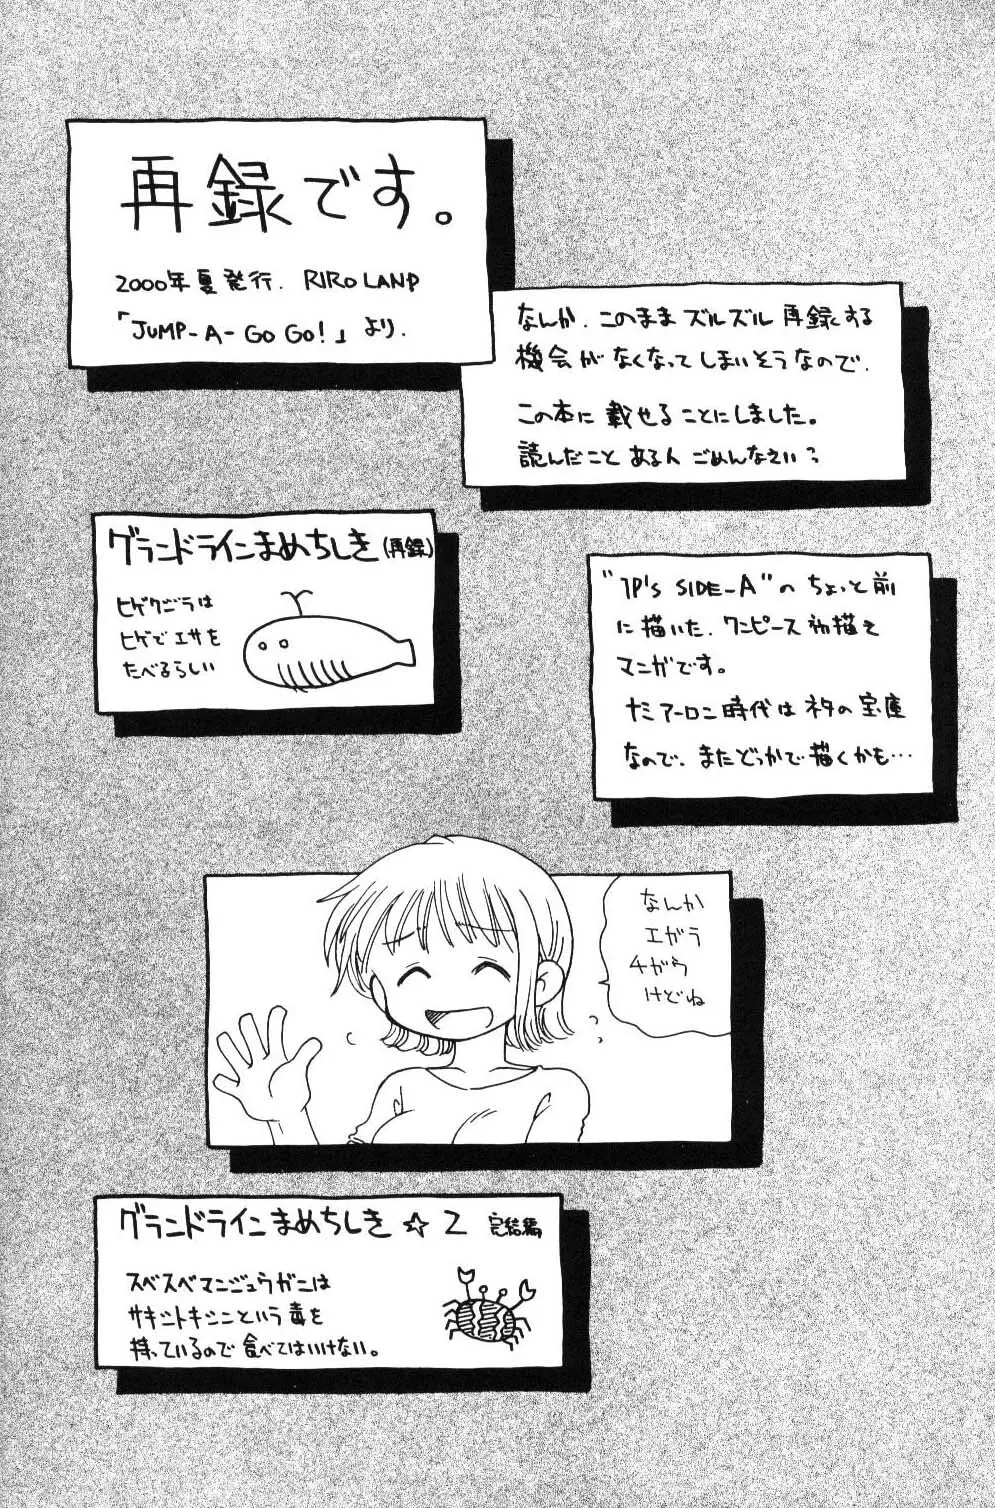 再録です。
2000年夏発行. RIRO LAND
「JUMP-A-GO GO!」より.
なんか、このままズルズル再録する
機会がなくなってしまいそうなので、
この本に載せることにしました。
読んだことある人ごめんなさい?
グランドラインまめちしき(再録)
ヒゲクジラは
ヒゲでエサを
たべるらしい
"1P's SIDE-A"のちょっと前
に描いた、ワンピース初描き
マンガです。
ナミアーロン時代はネタの宝庫
なので、またどっかで描くかも…
なんか
エガラ
チガウ
けどね
グランドラインまめちしき☆2 完結編
スベスベマンジュウガニは
サキシトキシンという毒を
持っているので食べてはいけない。